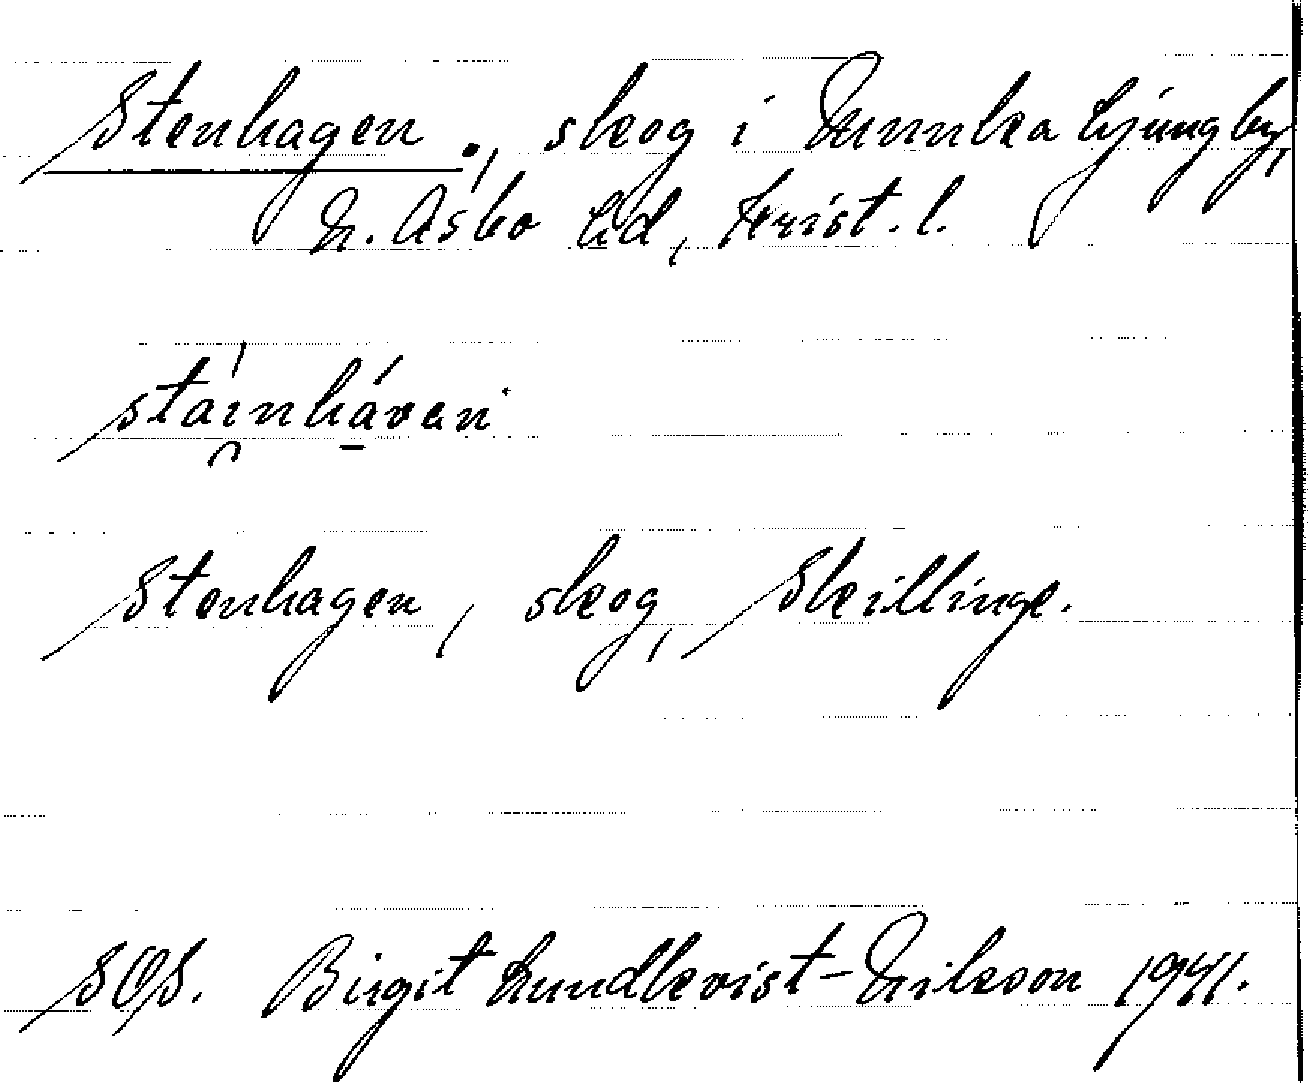 Stenhagen ., skog i Munka Ljungby,
N. Åsbo hd, Krist. l.
stai̯nhāvan
Stenhagen, skog, Skillinge.
SOS. Birgit Lundkvist-Nilsson 1941.